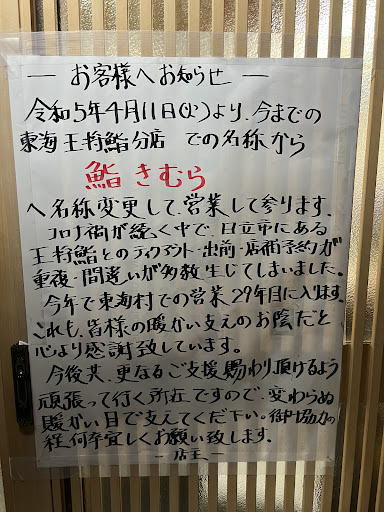 ― お客様へお知らせ ―
令和5年4月11日(火)より、今までの
東海王将鮨分店 での名称から
鮨きむら
へ名称変更して、営業して参ります。
コロナ禍が続く中で、日立市にある
王将鮨とのテイクアウト・出前・店舗予約が
重複・間違いが多数生じてしまいました。
今年で東海村での営業29年目に入ります。
これも、皆様の暖かい支えのお陰だと
心より感謝致しています。
今後共、更なるご支援賜わり頂けるよう
頑張って行く所存ですので、変わらぬ
暖かい目で支えてくだ下い。御協力の
程何卒宜しくお願い致します。
― 店主 ―